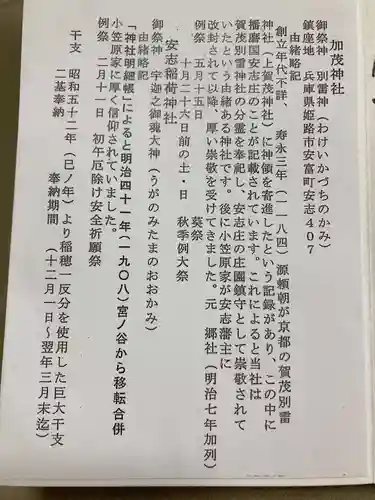 加茂神社
御祭神　別雷神（わけいかづちのかみ）
鎮座地　兵庫県姫路市安富町安志４０７
由緒略記
創立年代不詳、寿永三年（一一八四）源頼朝が京都の賀茂別雷
神社（上賀茂神社）に神領を寄進したという記録があり、この中に
播磨国安志庄のことが記載されています。これによると当社は
賀茂別雷神社の分霊を奉祀し、安志庄の庄園鎮守として崇敬されて
いたという由緒ある神社です。後に小笠原家が安志藩主に
改封されて以降、厚い崇敬を受けてきました。元　郷社（明治七年加列）
例祭　五月十五日　葵祭
十月二十六日前の土・日　秋季例大祭
安志稲荷神社
御祭神　宇迦之御魂大神（うがのみたまのおおかみ）
由緒略記
「神社明細帳」によると明治四十一年（一九〇八）宮ノ谷から移転合併
小笠原家に厚く信仰されていました。
例祭　二月十一日　初午厄除け安全祈願祭
干支　昭和五十二年（巳ノ年）より稲穂一反分を使用した巨大干支
二基奉納　奉納期間　（十二月一日～翌年三月末迄）